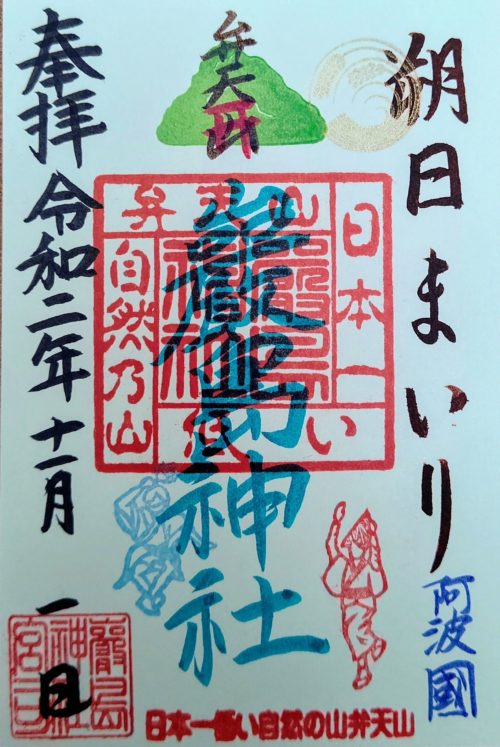 朔日まいり
阿波國
弁天
嚴島神社
弁天山
日本一
低い
自然乃山
奉拝
令和二年十一月一日
日本一低い自然の山弁天山